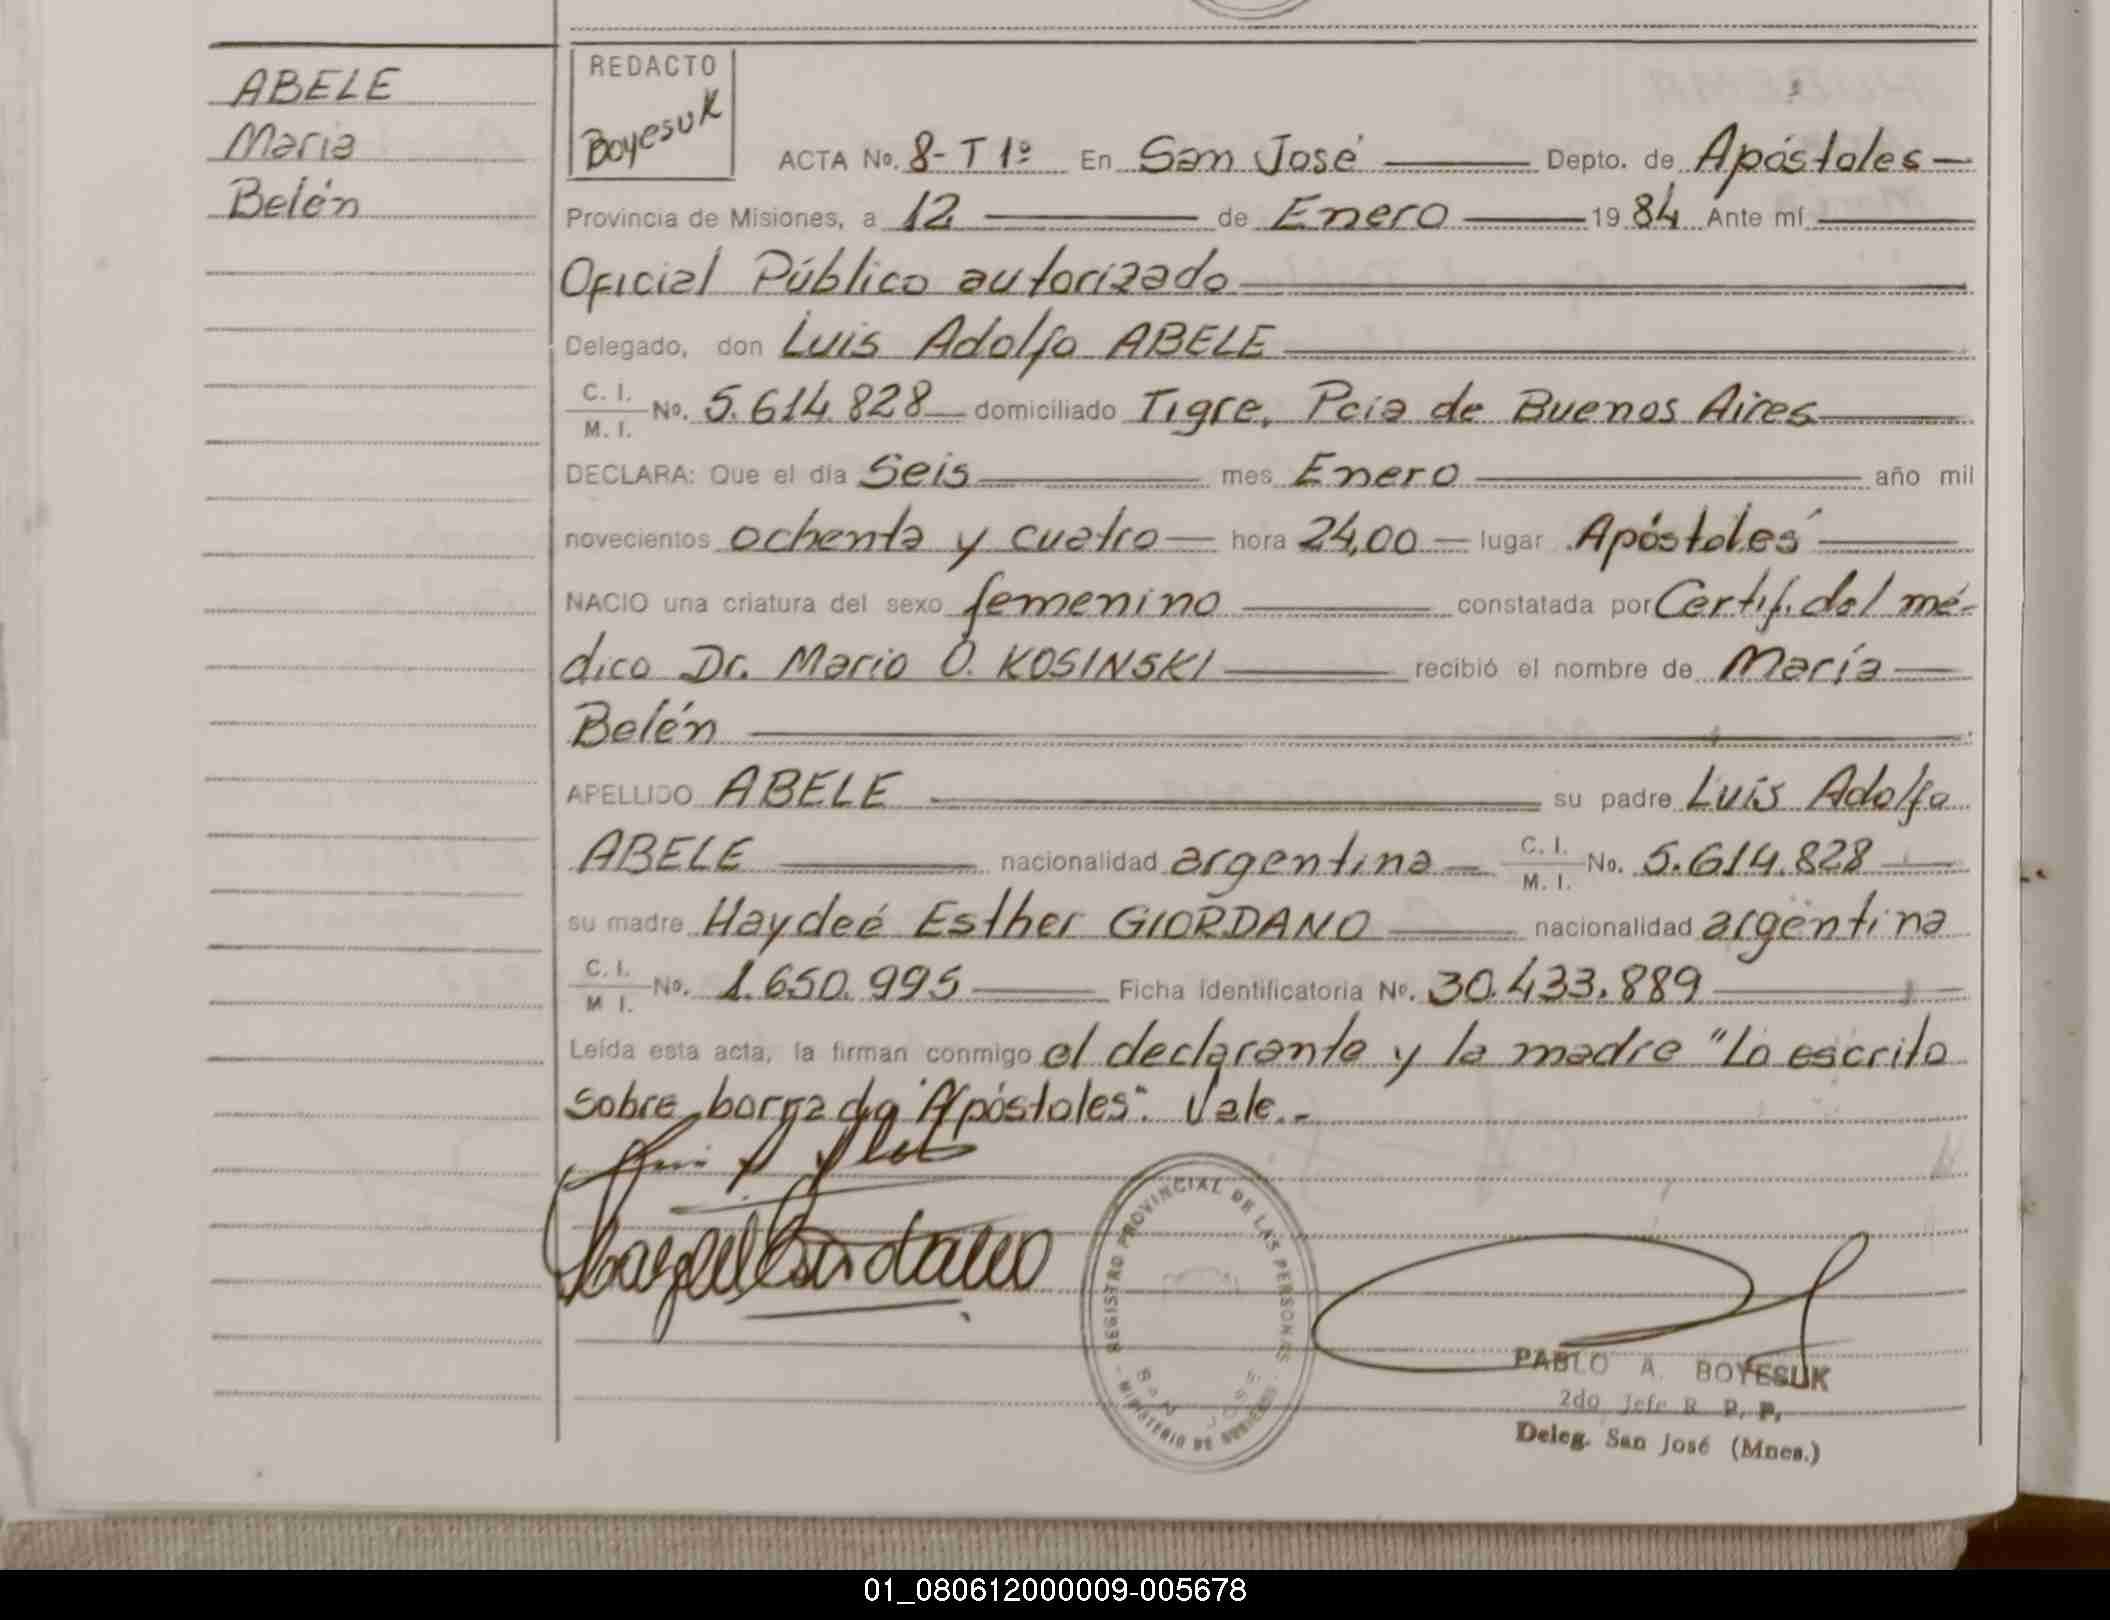 ABELE
Maria
Belén
REDACTO
Boyesuk
ACTA No. 8- T 1º En San José Depto. de Apóstoles
Provincia de Misiones, a 12 de Enero 1984 Ante mí
Oficial Público autorizado
Delegado, don Luis Adolfo ABELE
C. I. / M. I. No. 5.614.828 domiciliado Tigre, Pcia de Buenos Aires
DECLARA: Que el día Seis mes Enero año mil
novecientos ochenta y cuatro hora 24,00 lugar Apóstoles
NACIO una criatura del sexo femenino constatada por Certif. del mé-
dico Dr. Mario O. KOSINSKI recibió el nombre de María
Belén
APELLIDO ABELE su padre Luis Adolfo
ABELE nacionalidad argentina C. I. / M. I. No. 5.614.828
su madre Haydeé Esther GIORDANO nacionalidad argentina
C. I. / M I. No. 1.650.995 Ficha identificatoria No. 30.433.889
Leída esta acta, la firman conmigo el declarante y la madre "Lo escrito
sobre borrado "Apóstoles". Vale.-
REGISTRO PROVINCIAL DE LAS PERSONAS
SAN JOSE
MINISTERIO DE GOBIERNO
PABLO A. BOYESUK
2do Jefe R. P. P.
Deleg. San José (Mnes.)
01_080612000009-005678